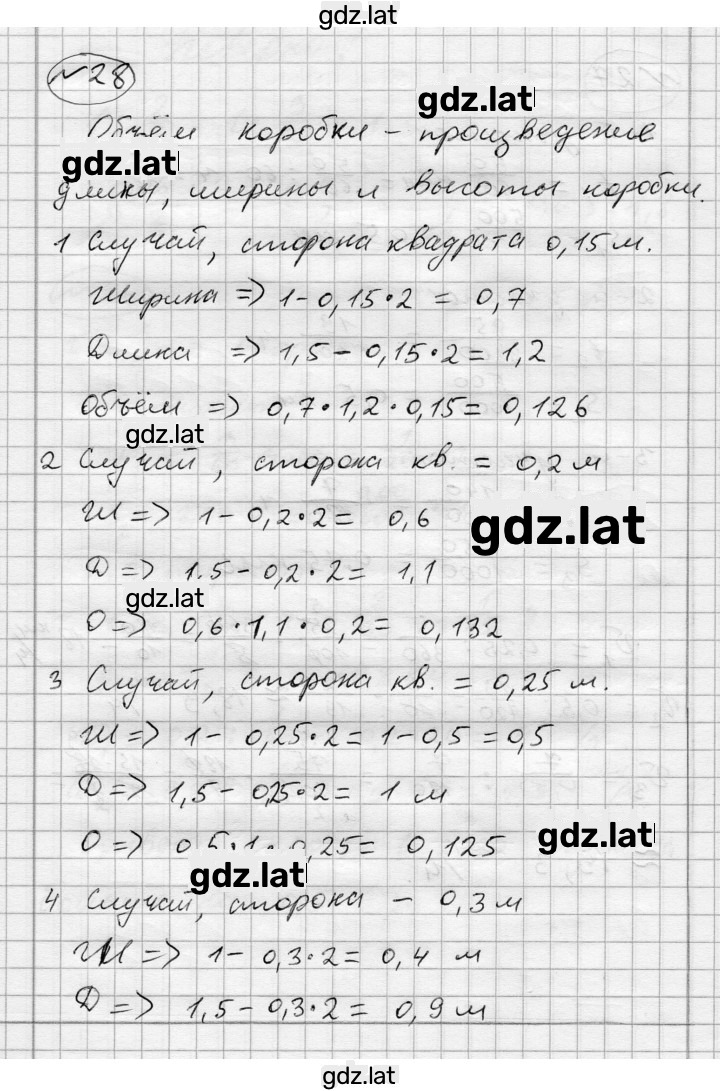 gdz.lat
№28
gdz.lat
Объём коробки – произведение
gdz.lat
длины, ширины и высоты коробки.
1 Случай, сторона квадрата 0,15 м.
Ширина => 1-0,15·2 = 0,7
Длина => 1,5-0,15·2=1,2
Объём => 0,7·1,2·0,15=0,126
gdz.lat
2 Случай, сторона кв. = 0,2 м
Ш => 1-0,2·2= 0,6
gdz.lat
Д => 1.5-0,2·2= 1,1
gdz.lat
О => 0,6·1,1·0,2= 0,132
3 Случай, сторона кв. = 0,25 м.
Ш => 1- 0,25·2=1-0,5=0,5
Д => 1,5- 0,25·2= 1 м
О => 0,5·1·0,25= 0,125
gdz.lat
gdz.lat
4 Случай, сторона – 0,3 м
Ш => 1- 0,3·2=0,4 м
Д => 1,5-0,3·2= 0,9 м
gdz.lat